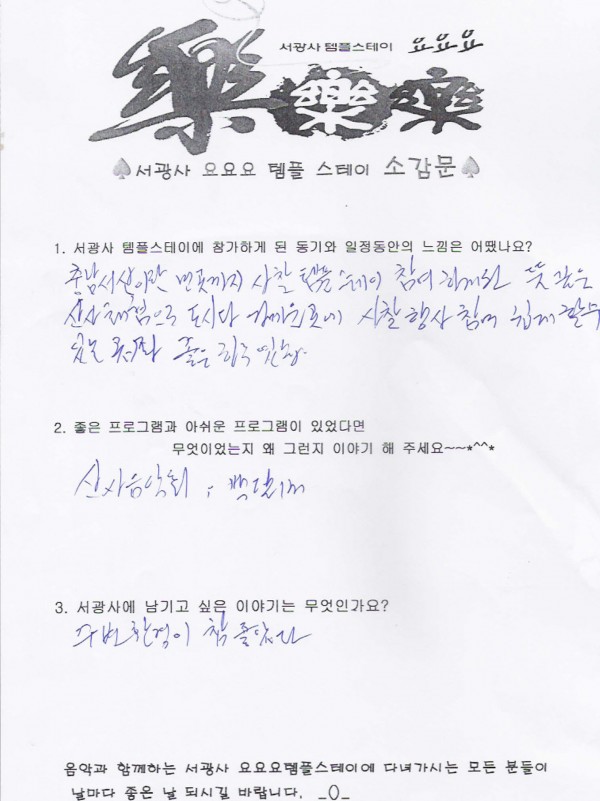 서광사 템플스테이 요요요
樂 樂 樂
♠서광사 요요요 템플 스테이 소감문♠
1. 서광사 템플스테이에 참가하게 된 동기와 일정동안의 느낌은 어땠나요?
충남서산이란 먼곳까지 사찰 템플스테이 참여 하게된 뜻 깊은
산사체험으로 도시다 가까운곳에 사찰 행사 참여 쉽게 할수
있는 좋은
2. 좋은 프로그램과 아쉬운 프로그램이 있었다면
무엇이었는지 왜 그런지 이야기 해 주세요~~*^^*
산사음악회
3. 서광사에 남기고 싶은 이야기는 무엇인가요?
주변환경이 참 좋았다
음악과 함께하는 서광사 요요요템플스테이에 다녀가시는 모든 분들이
날마다 좋은 날 되시길 바랍니다. _()_